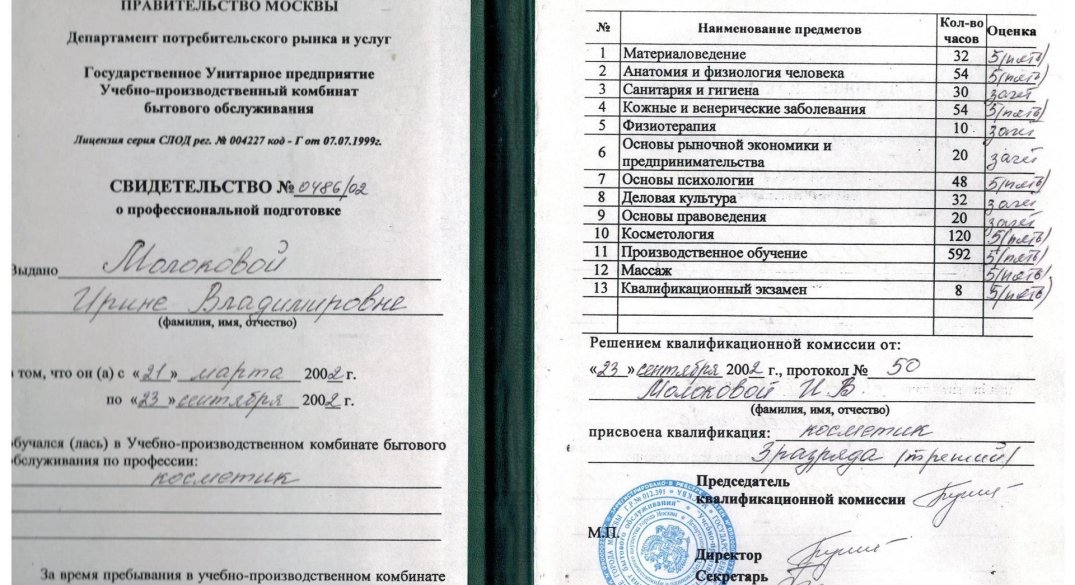 ПРАВИТЕЛЬСТВО МОСКВЫ
Департамент потребительского рынка и услуг
Государственное Унитарное предприятие
Учебно-производственный комбинат
бытового обслуживания
Лицензия серия СЛОД рег. № 004227 код - Г от 07.07.1999г.
СВИДЕТЕЛЬСТВО № 0486/02
о профессиональной подготовке
Выдано Молоковой
Ирине Владимировне
(фамилия, имя, отчество)
том, что он (а) с «21» марта 2002 г.
по «23» сентября 2002 г.
бучался (лась) в Учебно-производственном комбинате бытового
бслуживания по профессии:
косметик
За время пребывания в учебно-производственном комбинате
№ Наименование предметов Кол-во часов Оценка
1 Материаловедение 32 5/пять/
2 Анатомия и физиология человека 54 5/пять/
3 Санитария и гигиена 30 зачёт
4 Кожные и венерические заболевания 54 5/пять/
5 Физиотерапия 10 зачёт
6 Основы рыночной экономики и
предпринимательства 20 зачёт
7 Основы психологии 48 5/пять/
8 Деловая культура 32 зачёт
9 Основы правоведения 20 зачёт
10 Косметология 120 5/пять/
11 Производственное обучение 592 5/пять/
12 Массаж 5/пять/
13 Квалификационный экзамен 8 5/пять/
Решением квалификационной комиссии от:
«23» сентября 2002 г., протокол № 50
Молоковой И.В.
(фамилия, имя, отчество)
присвоена квалификация: косметик
3 разряда (третий)
Председатель
квалификационной комиссии
М.П.
Директор
Секретарь